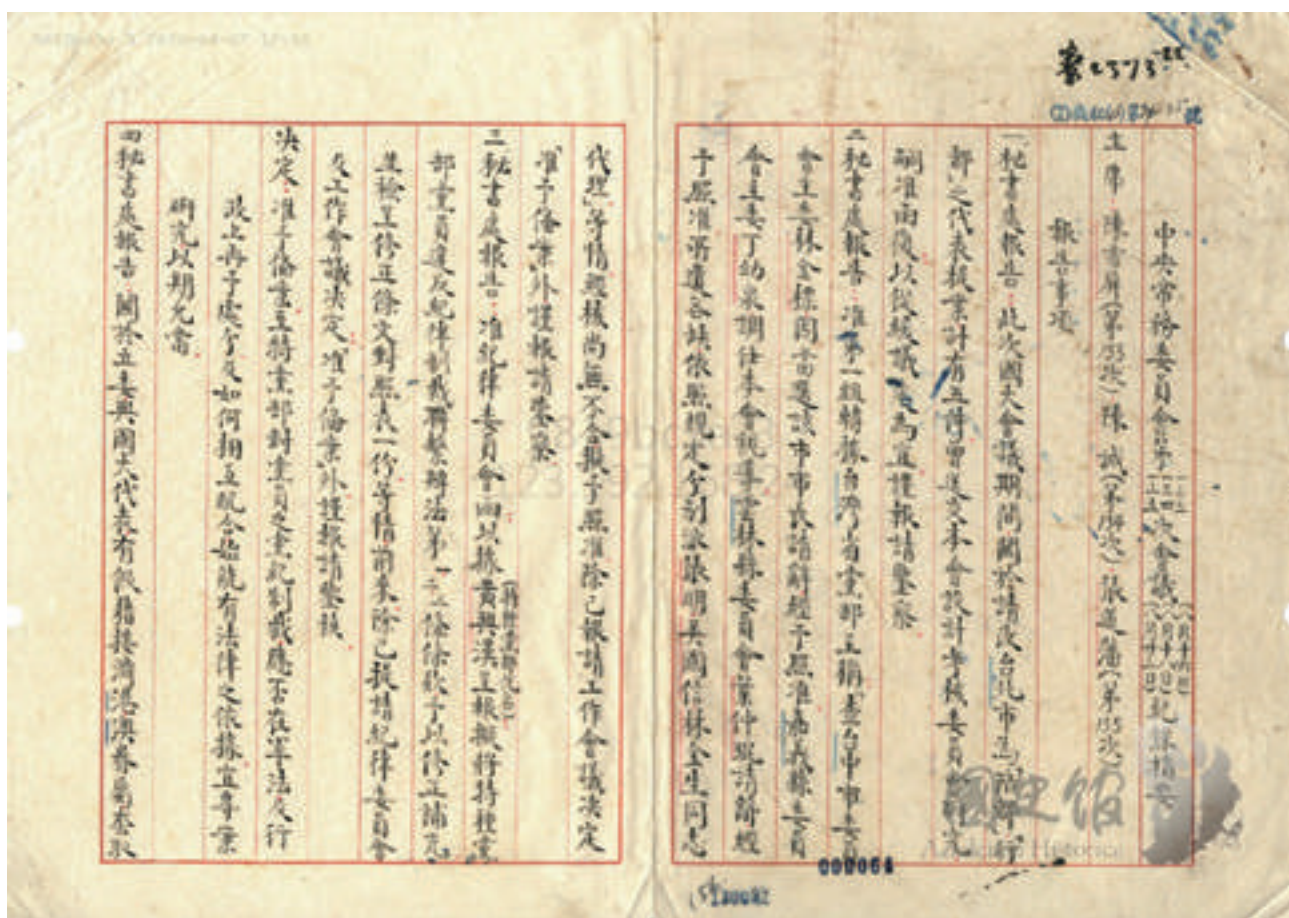 中央常務委員會第一三三 一三四 一三五次會議紀錄摘要
主席：陳雪屏（第133次）陳 誠（第134次）張道藩（第135次）
報告事項
一、秘書處報告：此次國大會議期間關於請改台北市為陪都「行
部」之代表提案計有五件曾送交本會設計考核委員會研究
嗣准函復以從緩議為宜謹報請鑒察
二、秘書處報告：准第一組轉據台灣省黨部主稱「查台中市委員
會主委林金標因當選該市市長請辭經予照准嘉義縣委員
會主委丁幼泉調任本會 雲林縣委員會葉仲 請辭經
予照准所遺各缺依照規定分別派張明 吳國信林金生同志
代理」等情經核尚無不合擬予照准除已報請工作會議決定
「准予備案」外謹報請鑒察
三、秘書處報告：准紀律委員會函以據黃興漢主報擬將特種黨
（特種黨部先台）
部黨員違反紀律制裁聯繫辦法第一二條條款予以修正補充
並檢呈修正條文對照表一份等情前來除已提請紀律委員會
及工作會議決定「准予備案」外謹報請鑒核
決定：准予備案至特黨部對黨員之黨紀制裁應否在軍法及行
政上再予處分及如何相互配合始能有法律之依據宜專案
研究以期允當
四、秘書處報告：關於立委與國大代表有領薪接濟港澳眷屬
000064
130082
國史館
Academia Historica